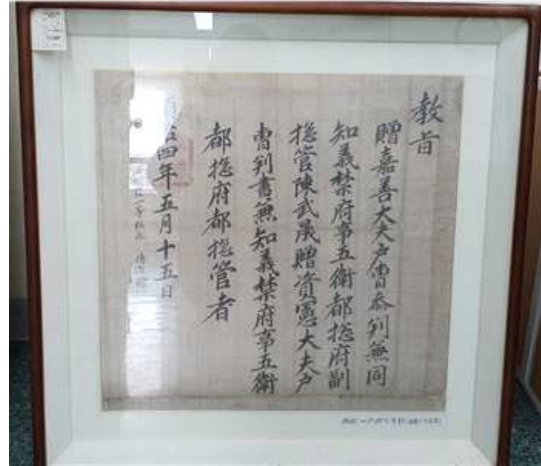 教旨
贈嘉善大夫戶曹叅判兼同
知義禁府事五衛都摠府副
摠管陳武晟贈資憲大夫戶
曹判書兼知義禁府事五衛
都摠府都摠管者
治四年五月十五日